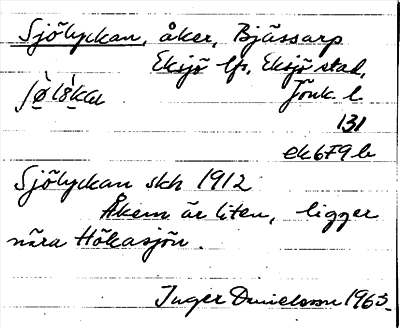 Sjölyckan, åker, Bjässarp
Eksjö lfs, Eksjö stad,
Jönk. l.
131
ek 679 b
Sjölyckan skh 1912
Åkern är liten, ligger
nära Hökasjön.
Inger Danielsson 1963.